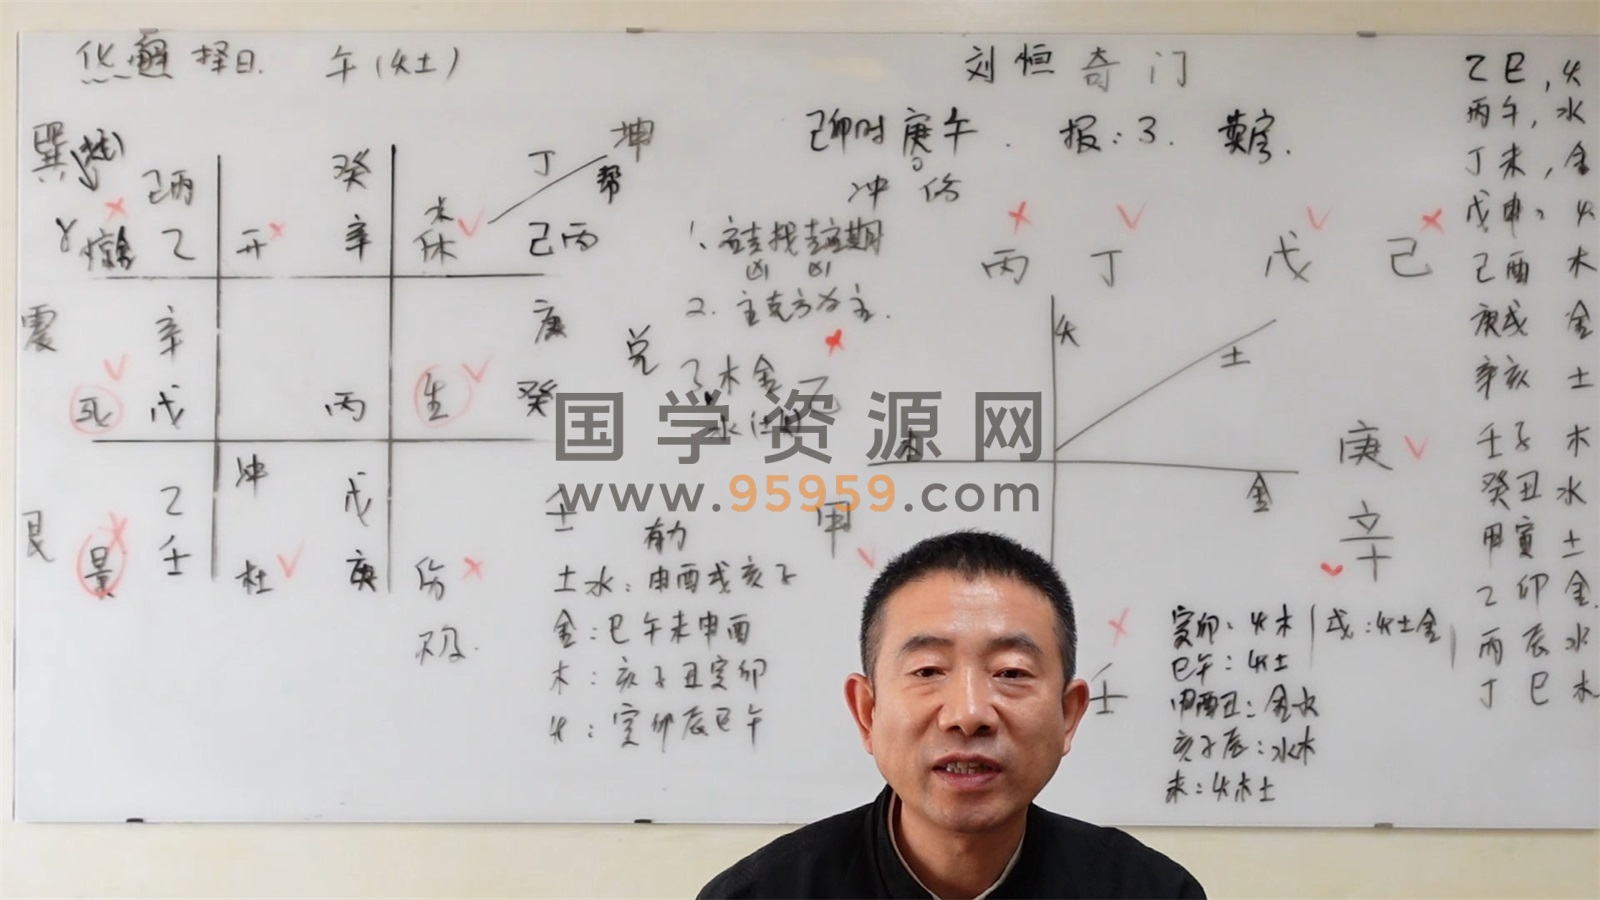 化解择日. 午(火土)
刘恒奇门
己卯时 庚午. 报:3. 卖房.
冲 伤
巽
己丙
癸
丁
坤
帮
乙
开
辛
休
己丙
震
辛
庚
兑
死
戊
丙
生
癸
艮
乙
冲
戊
壬
景
壬
杜
庚
伤
1、
2. 主克方为主.
3 木金
丙 丁 戊 己
火
土
木
金
乙
甲
庚
辛
壬
国学资源网
www.95959.com
有力
土水:申酉戌亥子
金:巳午未申酉
木:亥子丑寅卯
火:寅卯辰巳午
寅卯:火木 戌:火土金
巳午:火土
申酉丑:金水
亥子辰:水木
未:火木土
乙巳,火
丙午,水
丁未,金
戊申,火
己酉 木
庚戌 金
辛亥 土
壬子 木
癸丑 水
甲寅 土
乙卯 金
丙辰 水
丁巳 木